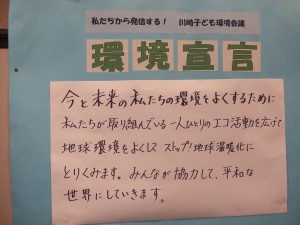 私たちから発信する！ 川崎子ども環境会議
環境宣言
今と未来の私たちの環境をよくするために
私たちが取り組んでいる一人ひとりのエコ活動を広げて
地球環境をよくして ストップ地球温暖化に
とりくみます。みんなが協力して、平和な
世界にしていきます。